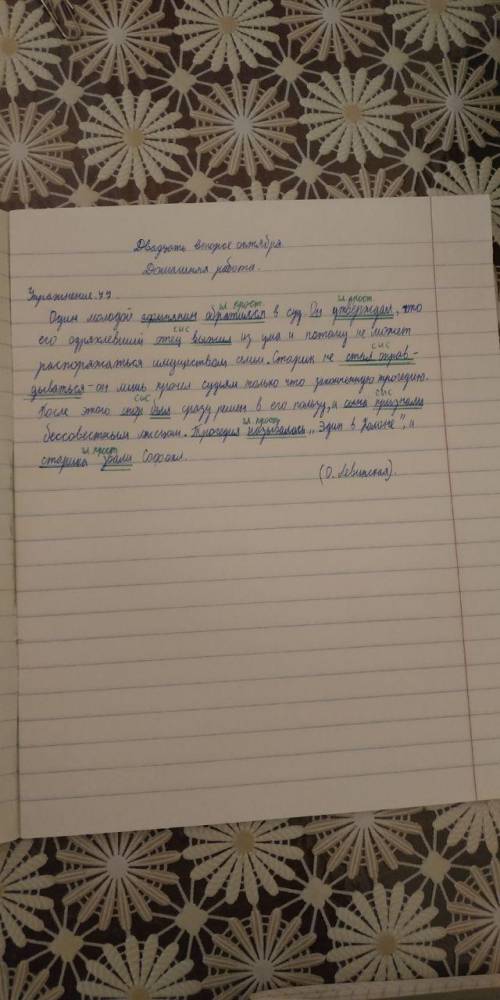 Двадцать второе октября.
Домашняя работа.
Упражнение 77.
гл. прост. гл. прост.
Один молодой афинянин обратился в суд. Он утверждал, что
сис
его одряхлевший отец выжил из ума и потому не может
сис
распоряжаться имуществом семьи. Старик не стал оправ-
дываться - он лишь прочёл судьям только что законченную трагедию.
сис сис
После этого спор был сразу решён в его пользу, а сына признали
гл. прост
бессовестным лжецом. Трагедия называлась „Эдип в Колоне", и
гл. прост
старика звали Софокл.
(О. Левинская).